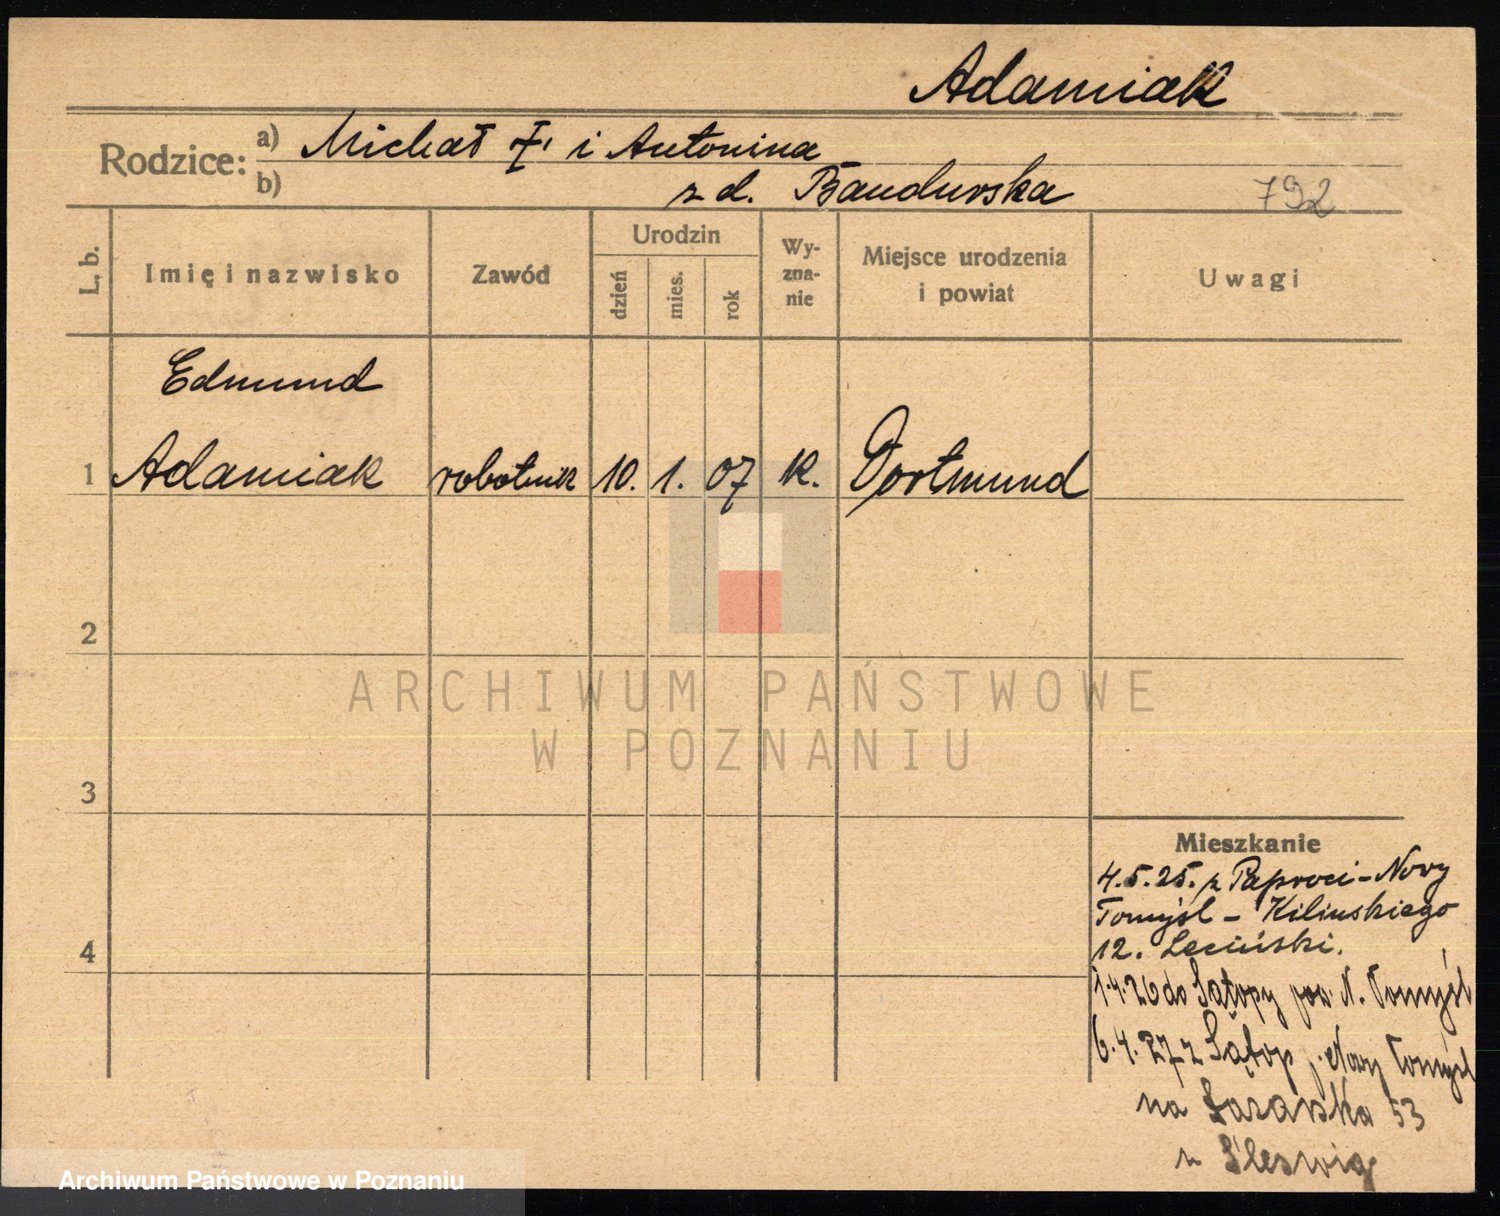 Adamiak
Rodzice: a) Michał F. i Antonina
b) z d. Bandurska
792
L. b.
Imię i nazwisko
Zawód
Urodzin
dzień
mies.
rok
Wy-
zna-
nie
Miejsce urodzenia
i powiat
Uwagi
Edmund
1 Adamiak robotnik 10. 1. 07 k. Dortmund
2
ARCHIWUM PAŃSTWOWE
W POZNANIU
3
Mieszkanie
4.5.25. z Paproci - Nowy
Tomyśl - Kilińskiego
4
12. Leciński.
1.4.26 do Sątopy pow. N. Tomyśl
6.4.27 z Sątop, Nowy Tomyśl
na Łazarska 53
Archiwum Państwowe w Poznaniu